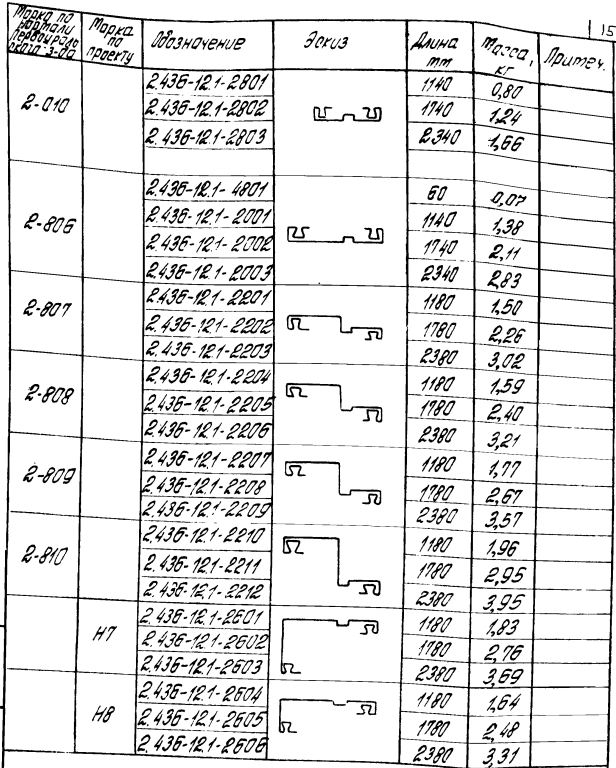 15
Марка по нормали Первоуральского з-да | Марка по проекту | Обозначение | Эскиз | Длина мм | Масса, кг | Примеч.
2-010 | 2.436-12.1-2801 | 1140 | 0,80
2.436-12.1-2802 | 1740 | 1,24
2.436-12.1-2803 | 2340 | 1,66
2-806 | 2.436-12.1-4801 | 60 | 0,07
2.436-12.1-2001 | 1140 | 1,38
2.436-12.1-2002 | 1740 | 2,11
2.436-12.1-2003 | 2340 | 2,83
2-807 | 2.436-12.1-2201 | 1180 | 1,50
2.436-12.1-2202 | 1780 | 2,26
2.436-12.1-2203 | 2380 | 3,02
2-808 | 2.436-12.1-2204 | 1180 | 1,59
2.436-12.1-2205 | 1780 | 2,40
2.436-12.1-2206 | 2380 | 3,21
2-809 | 2.436-12.1-2207 | 1180 | 1,77
2.436-12.1-2208 | 1780 | 2,67
2.436-12.1-2209 | 2380 | 3,57
2-810 | 2.436-12.1-2210 | 1180 | 1,96
2.436-12.1-2211 | 1780 | 2,95
2.436-12.1-2212 | 2380 | 3,95
Н7 | 2.436-12.1-2601 | 1180 | 1,83
2.436-12.1-2602 | 1780 | 2,76
2.436-12.1-2603 | 2380 | 3,69
Н8 | 2.436-12.1-2604 | 1180 | 1,64
2.436-12.1-2605 | 1780 | 2,48
2.436-12.1-2606 | 2380 | 3,31